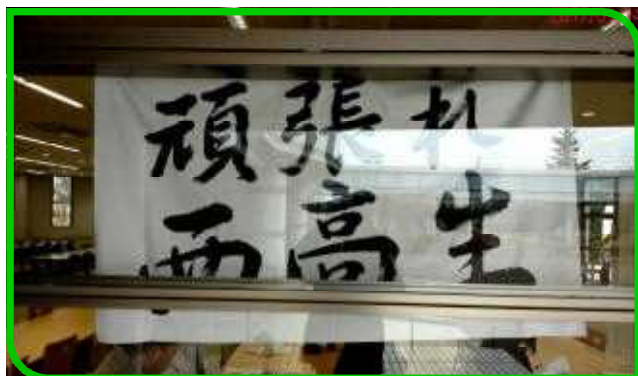 頑張れ
西高生